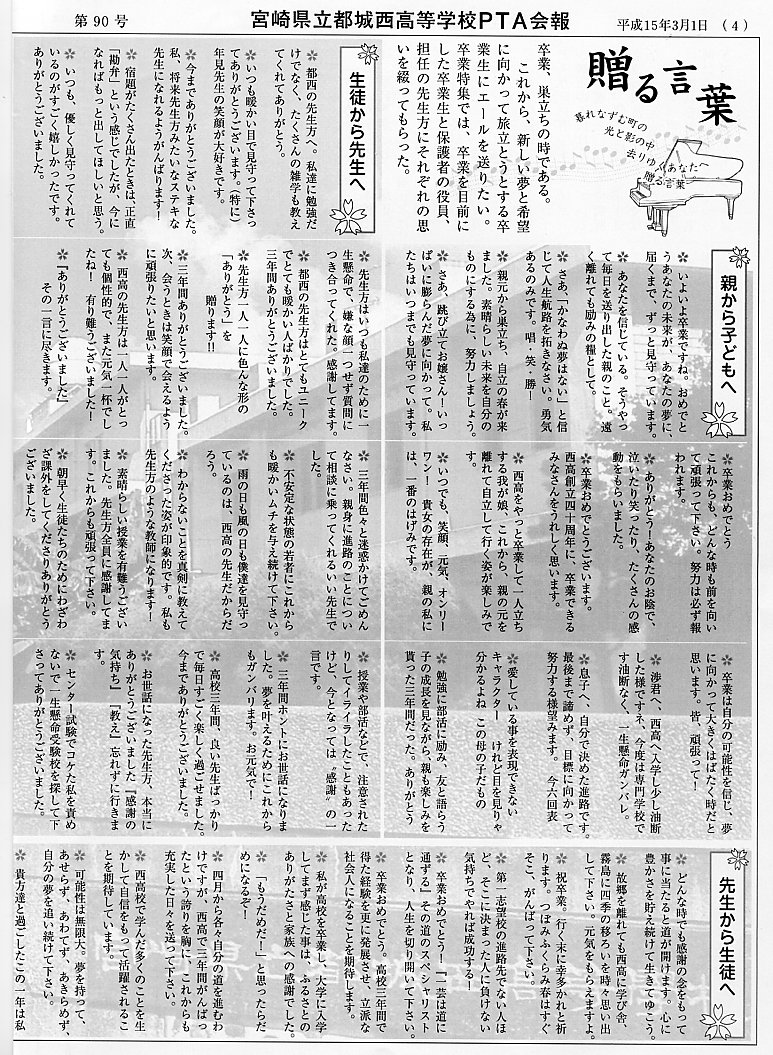 第90号
宮崎県立都城西高等学校PTA会報
平成15年3月1日 (4)
贈る言葉
暮れなずむ町の
光と影の中
去りゆくあなたへ
贈る言葉
卒業、巣立ちの時である。
これから、新しい夢と希望
に向かって旅立とうとする卒
業生にエールを送りたい。
卒業特集では、卒業を目前に
した卒業生と保護者の役員、
担任の先生方にそれぞれの思
いを綴ってもらった。
生徒から先生へ
都西の先生方へ。私達に勉強だ
けでなく、たくさんの雑学も教え
てくれてありがとう。
いつも暖かい目で見守って下さっ
てありがとうございます。(特に)
年見先生の笑顔が大好きです。
今までありがとうございました。
私、将来先生方みたいなステキな
先生になれるようがんばります!
宿題がたくさん出たときは、正直
「勘弁」という感じでしたが、今に
なればもっと出してほしいと思う。
いつも、優しく見守ってくれて
いるのがすごく嬉しかったです。
ありがとうございました。
先生方はいつも私達のために一
生懸命で、嫌な顔一つせず質問に
つき合ってくれた。感謝してます。
都西の先生方はとてもユニーク
でとても暖かい人ばかりでした。
三年間ありがとうございました。
先生方一人一人に色んな形の
「ありがとう」を
贈ります!!
三年間ありがとうございました。
次、会うときは笑顔で会えるよう
に頑張りたいと思います。
西高の先生方は一人一人がとっ
ても個性的で、また元気一杯でし
たね!有り難うございました!
『ありがとうございました』
その一言に尽きます。
三年間色々と迷惑かけてごめん
なさい。親身に進路のことについ
て相談に乗ってくれるいい先生で
した。
不安定な状態の若者にこれから
も暖かいムチを与え続けて下さい。
雨の日も風の日も僕達を見守っ
ているのは、西高の先生だからだ
ろう。
わからないことを真剣に教えて
くださった姿が印象的です。私も
先生方のような教師になります!
素晴らしい授業を有難うござい
ました。先生方全員に感謝してま
す。これからも頑張って下さい。
朝早く生徒たちのためにわざわ
ざ課外をしてくださりありがとう
ございました。
授業や部活などで、注意された
りしてイライラしたこともあった
けど、今となっては〝感謝〟の一
言です。
三年間ホントにお世話になりま
した。夢を叶えるためにこれから
もガンバリます。お元気で!
高校三年間、良い先生ばっかり
で毎日すごく楽しく過ごせました。
今までありがとうございました。
お世話になった先生方、本当に
ありがとうございました『感謝の
気持ち』『教え』忘れずに行きま
す。
センター試験でコケた私を責め
ないで一生懸命受験校を探して下
さってありがとうございました。
親から子どもへ
いよいよ卒業ですね。おめでと
うあなたの未来が、あなたの夢に、
届くまで、ずっと見守っています。
あなたを信じている。そうやっ
て毎日を送り出した親のこと。遠
く離れても励みの種として。
さあ、「かなわぬ夢はない」と信
じて人生航路を拓きなさい。勇気
あるのみです。唱・笑・勝!
親元から巣立ち、自立の春が来
ました。素晴らしい未来を自分の
ものにする為に、努力しましょう。
さあ、跳び立てお嬢さん!いっ
ぱいに膨らんだ夢に向かって。私
たちはいつまでも見守っています。
卒業おめでとう
これからも、どんな時も前を向い
て頑張って下さい。努力は必ず報
われます。
ありがとう!あなたのお陰で、
泣いたり笑ったり、たくさんの感
動をもらいました。
卒業おめでとうございます。
西高創立四十周年に、卒業できる
みなさんをうれしく思います。
西高をやっと卒業して一人立ち
する我が娘、これから、親の元を
離れて自立して行く姿が楽しみで
す。
いつでも、笑顔、元気、オンリー
ワン!貴女の存在が、親の私に
は、一番のはげみです。
卒業は自分の可能性を信じ、夢
に向かって大きくはばたく時だと
思います。皆、頑張って!
渉君へ、西高へ入学し少し油断
した様ですネ、今度は専門学校で
す油断なく、一生懸命ガンバレ。
息子へ、自分で決めた進路です。
最後まで諦めず、目標に向かって
努力する様望みます。 今六回表
愛している事を表現できない
キャラクター けれど目を見りゃ
分かるよね この母の子だもの
勉強に部活に励み、友と語らう
子の成長を見ながら、親も楽しみを
貰った三年間だった。ありがとう
先生から生徒へ
どんな時でも感謝の念をもって
事に当たると道が開けます。心に
豊かさを貯え続けて生きてゆこう。
故郷を離れても西高に学び舎、
霧島に四季の移ろいを時々思い出
して下さい。元気をもらえますよ。
祝卒業。行く末に幸多かれと祈
ります。つぼみふくらみ春はすぐ
そこ、がんばって下さい。
第一志望校の進路先でない人ほ
ど、そこに決まった人に負けない
気持ちでやれば成功する!
卒業おめでとう!『一芸は道に
通ずる』その道のスペシャリスト
となり、人生を切り開いて下さい。
卒業おめでとう。高校三年間で
得た経験を更に発展させ、立派な
社会人になることを期待します。
私が高校を卒業し、大学に入学
してまず感じた事は、ふるさとの
ありがたさと家族への感謝でした。
「もうだめだ!」と思ったらだ
めになるぞ!
四月から各々自分の道を進むわ
けですが、西高で三年間がんばっ
たという誇りを胸に、これからも
充実した日々を送って下さい。
西高校で学んだ多くのことを生
かして自信をもって活躍されるこ
とを期待しています。
可能性は無限大。夢を持って、
あせらず、あわてず、あきらめず、
自分の夢を追い続けて下さい。
貴方達と過ごしたこの一年は私